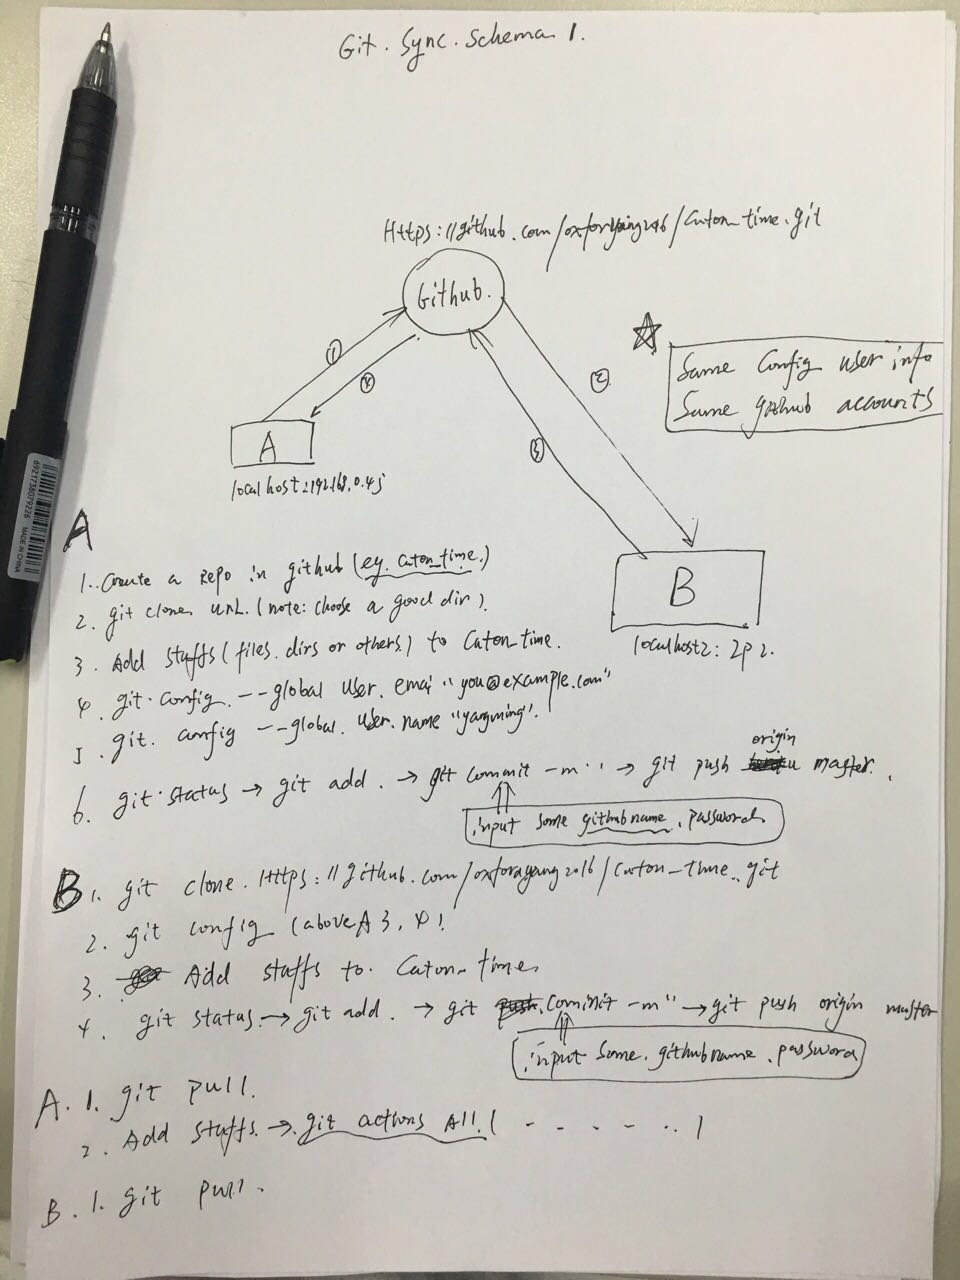 Git. Sync. Schema 1.
Https://github.com/oxforayang2016/Caton_time.git
Github.
① ④ ② ③
Same Config user info
Same github accounts
A
localhost:192.168.0.45
B
localhost2: 2p2.
A
1. Create a repo in github (eg. Caton_time.)
2. git clone URL. (note: choose a good dir).
3. Add stuffs (files. dirs or others) to Caton_time.
4. git. config. --global user. emai "you@example.com"
5. git. config --global. user. name "yangming".
6. git. status → git add. → git commit -m" → git push origin master.
input same githubname. password
B 1. git clone. Https://github.com/oxforayang2016/Caton_time. git
2. git config (above A 3, 4)
3. Add stuffs to. Caton_time.
4. git status. → git add. → git commit -m" → git push origin master
input Same. githubname. password
A. 1. git pull.
2. Add stuffs. → git actions All. ( - . . - - .. )
B. 1. git pull.
6921738079226
MADE IN CHINA